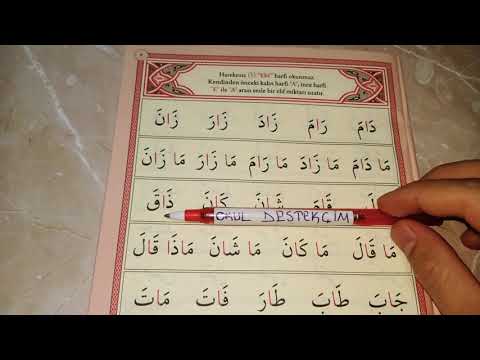 Harekesiz (ا) "Elif" harfi okunmaz
Kendinden önceki kalın harfi "A", ince harfi
"E" ile "A" arası sesle bir elif miktarı uzatır.
دَامَ رَامَ زَادَ زَارَ زَانَ
مَا دَامَ مَا زَادَ مَا رَامَ مَا زَارَ مَا زَانَ
قَامَ شَانَ كَانَ ذَاقَ
OKUL DESTEKÇİM
مَا قَالَ مَا كَانَ مَا شَانَ مَاذَا قَالَ
جَابَ طَابَ طَارَ فَاتَ مَاتَ